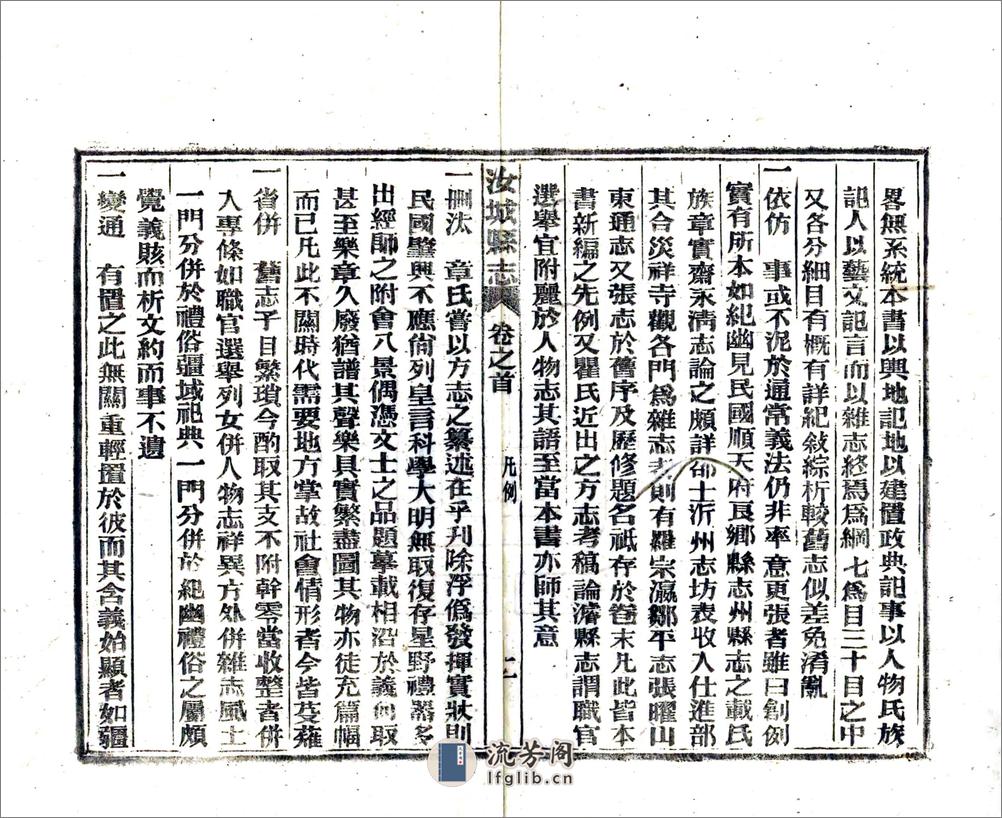 畧無系統本書以輿地記地以建置政典記事以人物氏族
記人以藝文記言而以雜志終焉爲綱七爲目三十目之中
又各分細目有概有詳紀敘綜析較舊志似差免淆亂
一依仿　事或不泥於通常義法仍非率意更張者雖曰創例
實有所本如紀幽見民國順天府良鄉縣志州縣志之載氏
族章實齋永淸志論之頗詳邵士沂州志坊表收入仕進部
其合災祥寺觀各門爲雜志者則有羅宗瀛鄒平志張曜山
東通志又張志於舊序及歷修題名祇存於卷末凡此皆本
書新編之先例又瞿氏近出之方志考稿論濬縣志謂職官
選舉宜附麗於人物志其語至當本書亦師其意
汝城縣志　卷之首　凡例　十一
一刪汰　章氏嘗以方志之纂述在乎刋除浮僞發揮實狀則
民國肇興不應尙列皇言科學大明無取復存星野禮器多
出經師之附會八景偶憑文士之品題摹載相沿於義何取
甚至樂章久廢猶譜其聲樂具實繁盡圖其物亦徒充篇幅
而已凡此不關時代需要地方掌故社會情形者今皆芟薙
一省併　舊志子目繁瑣今酌取其支不附幹零當收整者併
入專條如職官選舉列女併人物志祥異方外併雜志風土
一門分併於禮俗疆域祀典一門分併於紀幽禮俗之屬頗
覺義賅而析文約而事不遺
一變通　有置之此無關重輕置於彼而其含義始顯者如疆
流芳阁
lfglib.cn